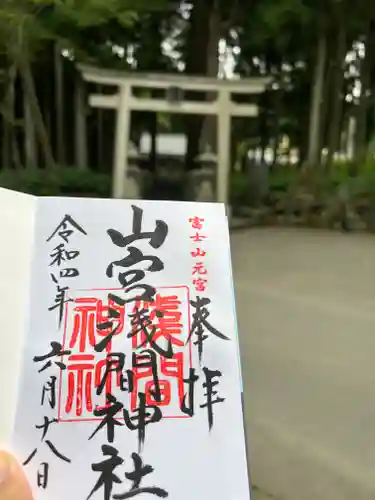 富士山元宮
奉拝
山宮浅間神社
浅間神社
令和四年六月十八日